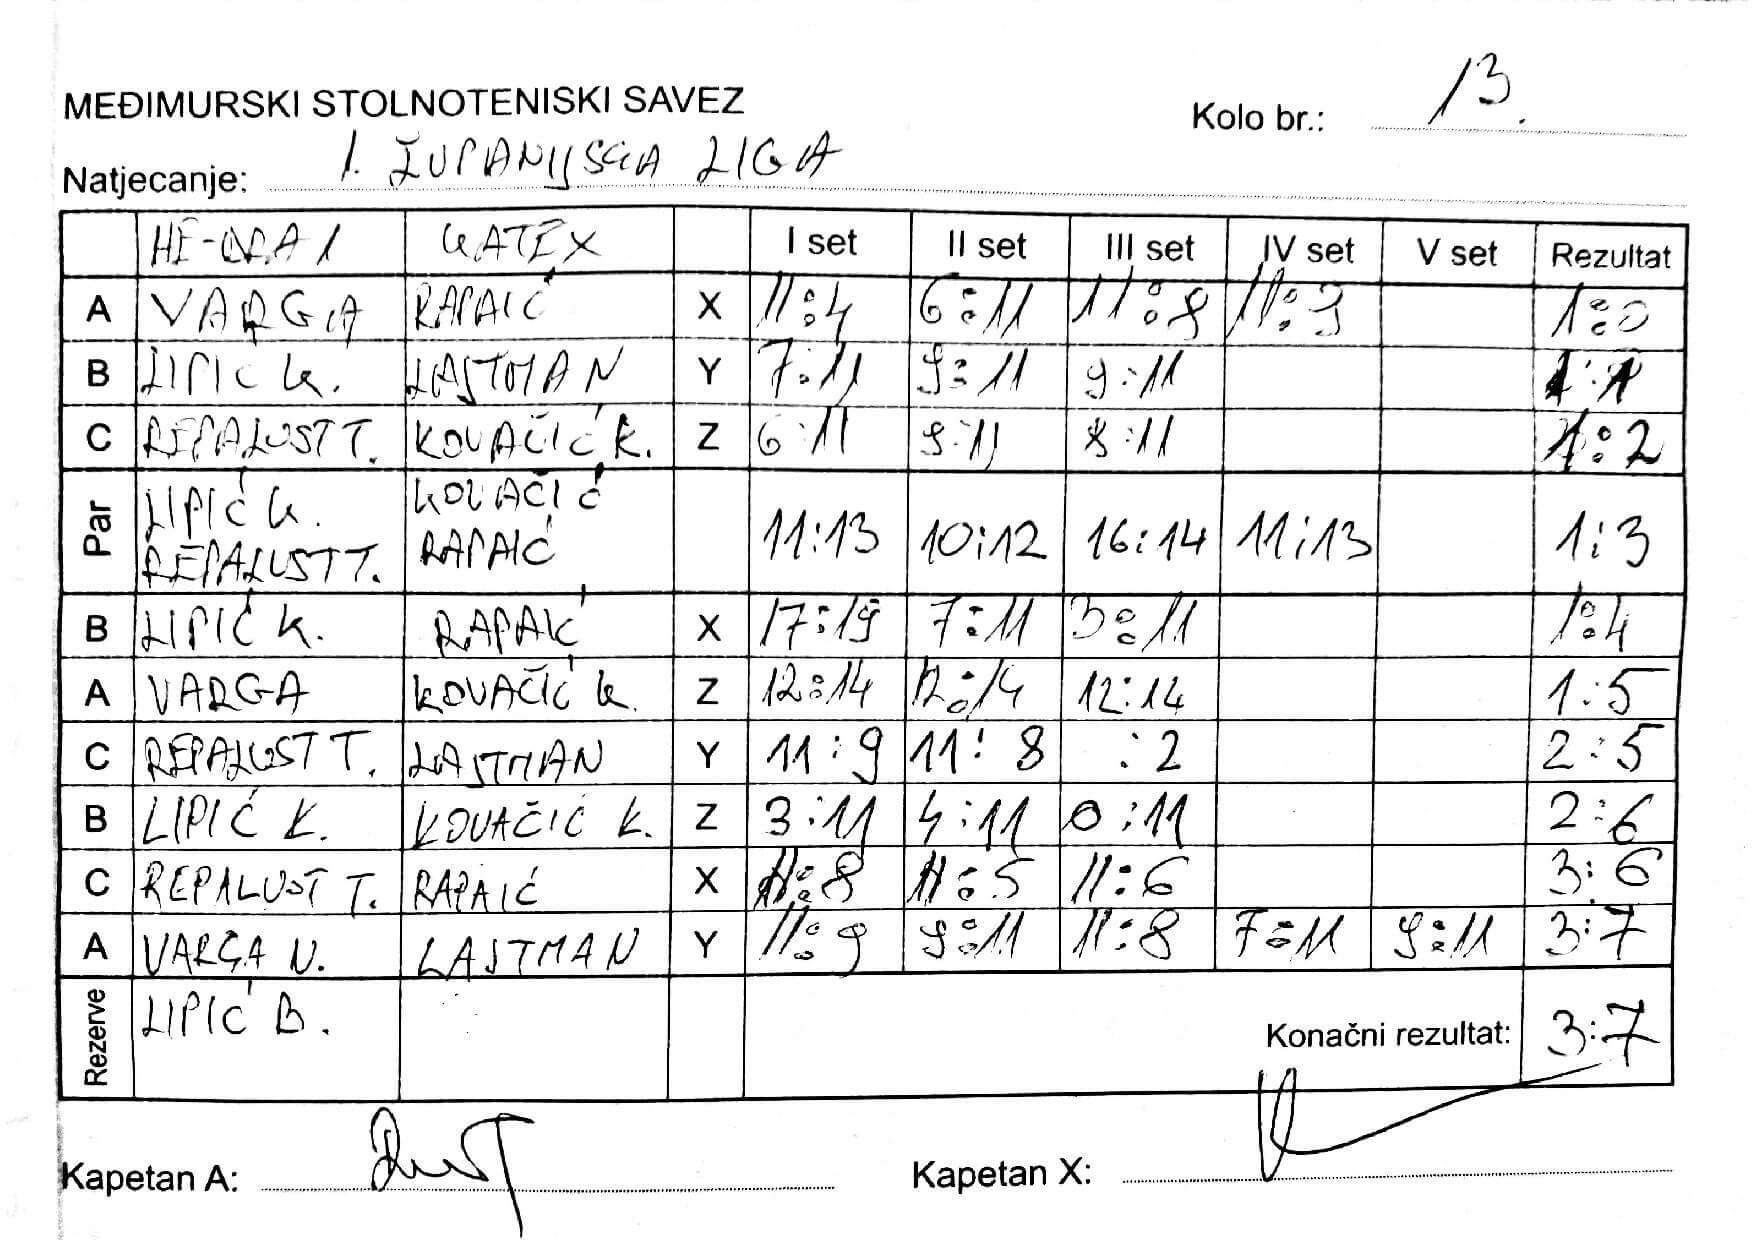 MEĐIMURSKI STOLNOTENISKI SAVEZ
Kolo br.: 13.
Natjecanje: 1. ŽUPANIJSKA LIGA
GATEX I set II set III set IV set V set Rezultat
A VARGA RAPAIĆ X 11:4 6:11 11:8 11:3 1:0
B LIPIĆ K. LASTMAN Y 7:11 9:11 9:11 1:1
C REPALUST T. KOVAČIĆ K. Z 6:11 9:11 8:11 1:2
Par LIPIĆ K. REPALUST T. KOVAČIĆ RAPAIĆ 11:13 10:12 16:14 11:13 1:3
B LIPIĆ K. RAPAIĆ X 17:19 7:11 3:11 1:4
A VARGA KOVAČIĆ K. Z 12:14 12:14 12:14 1:5
C REPALUST T. LASTMAN Y 11:9 11:8 :2 2:5
B LIPIĆ K. KOVAČIĆ K. Z 3:11 4:11 0:11 2:6
C REPALUST T. RAPAIĆ X 11:8 11:5 11:6 3:6
A VARGA N. LASTMAN Y 11:9 9:11 11:8 7:11 9:11 3:7
Rezerve LIPIĆ B. Konačni rezultat: 3:7
Kapetan A: Kapetan X: